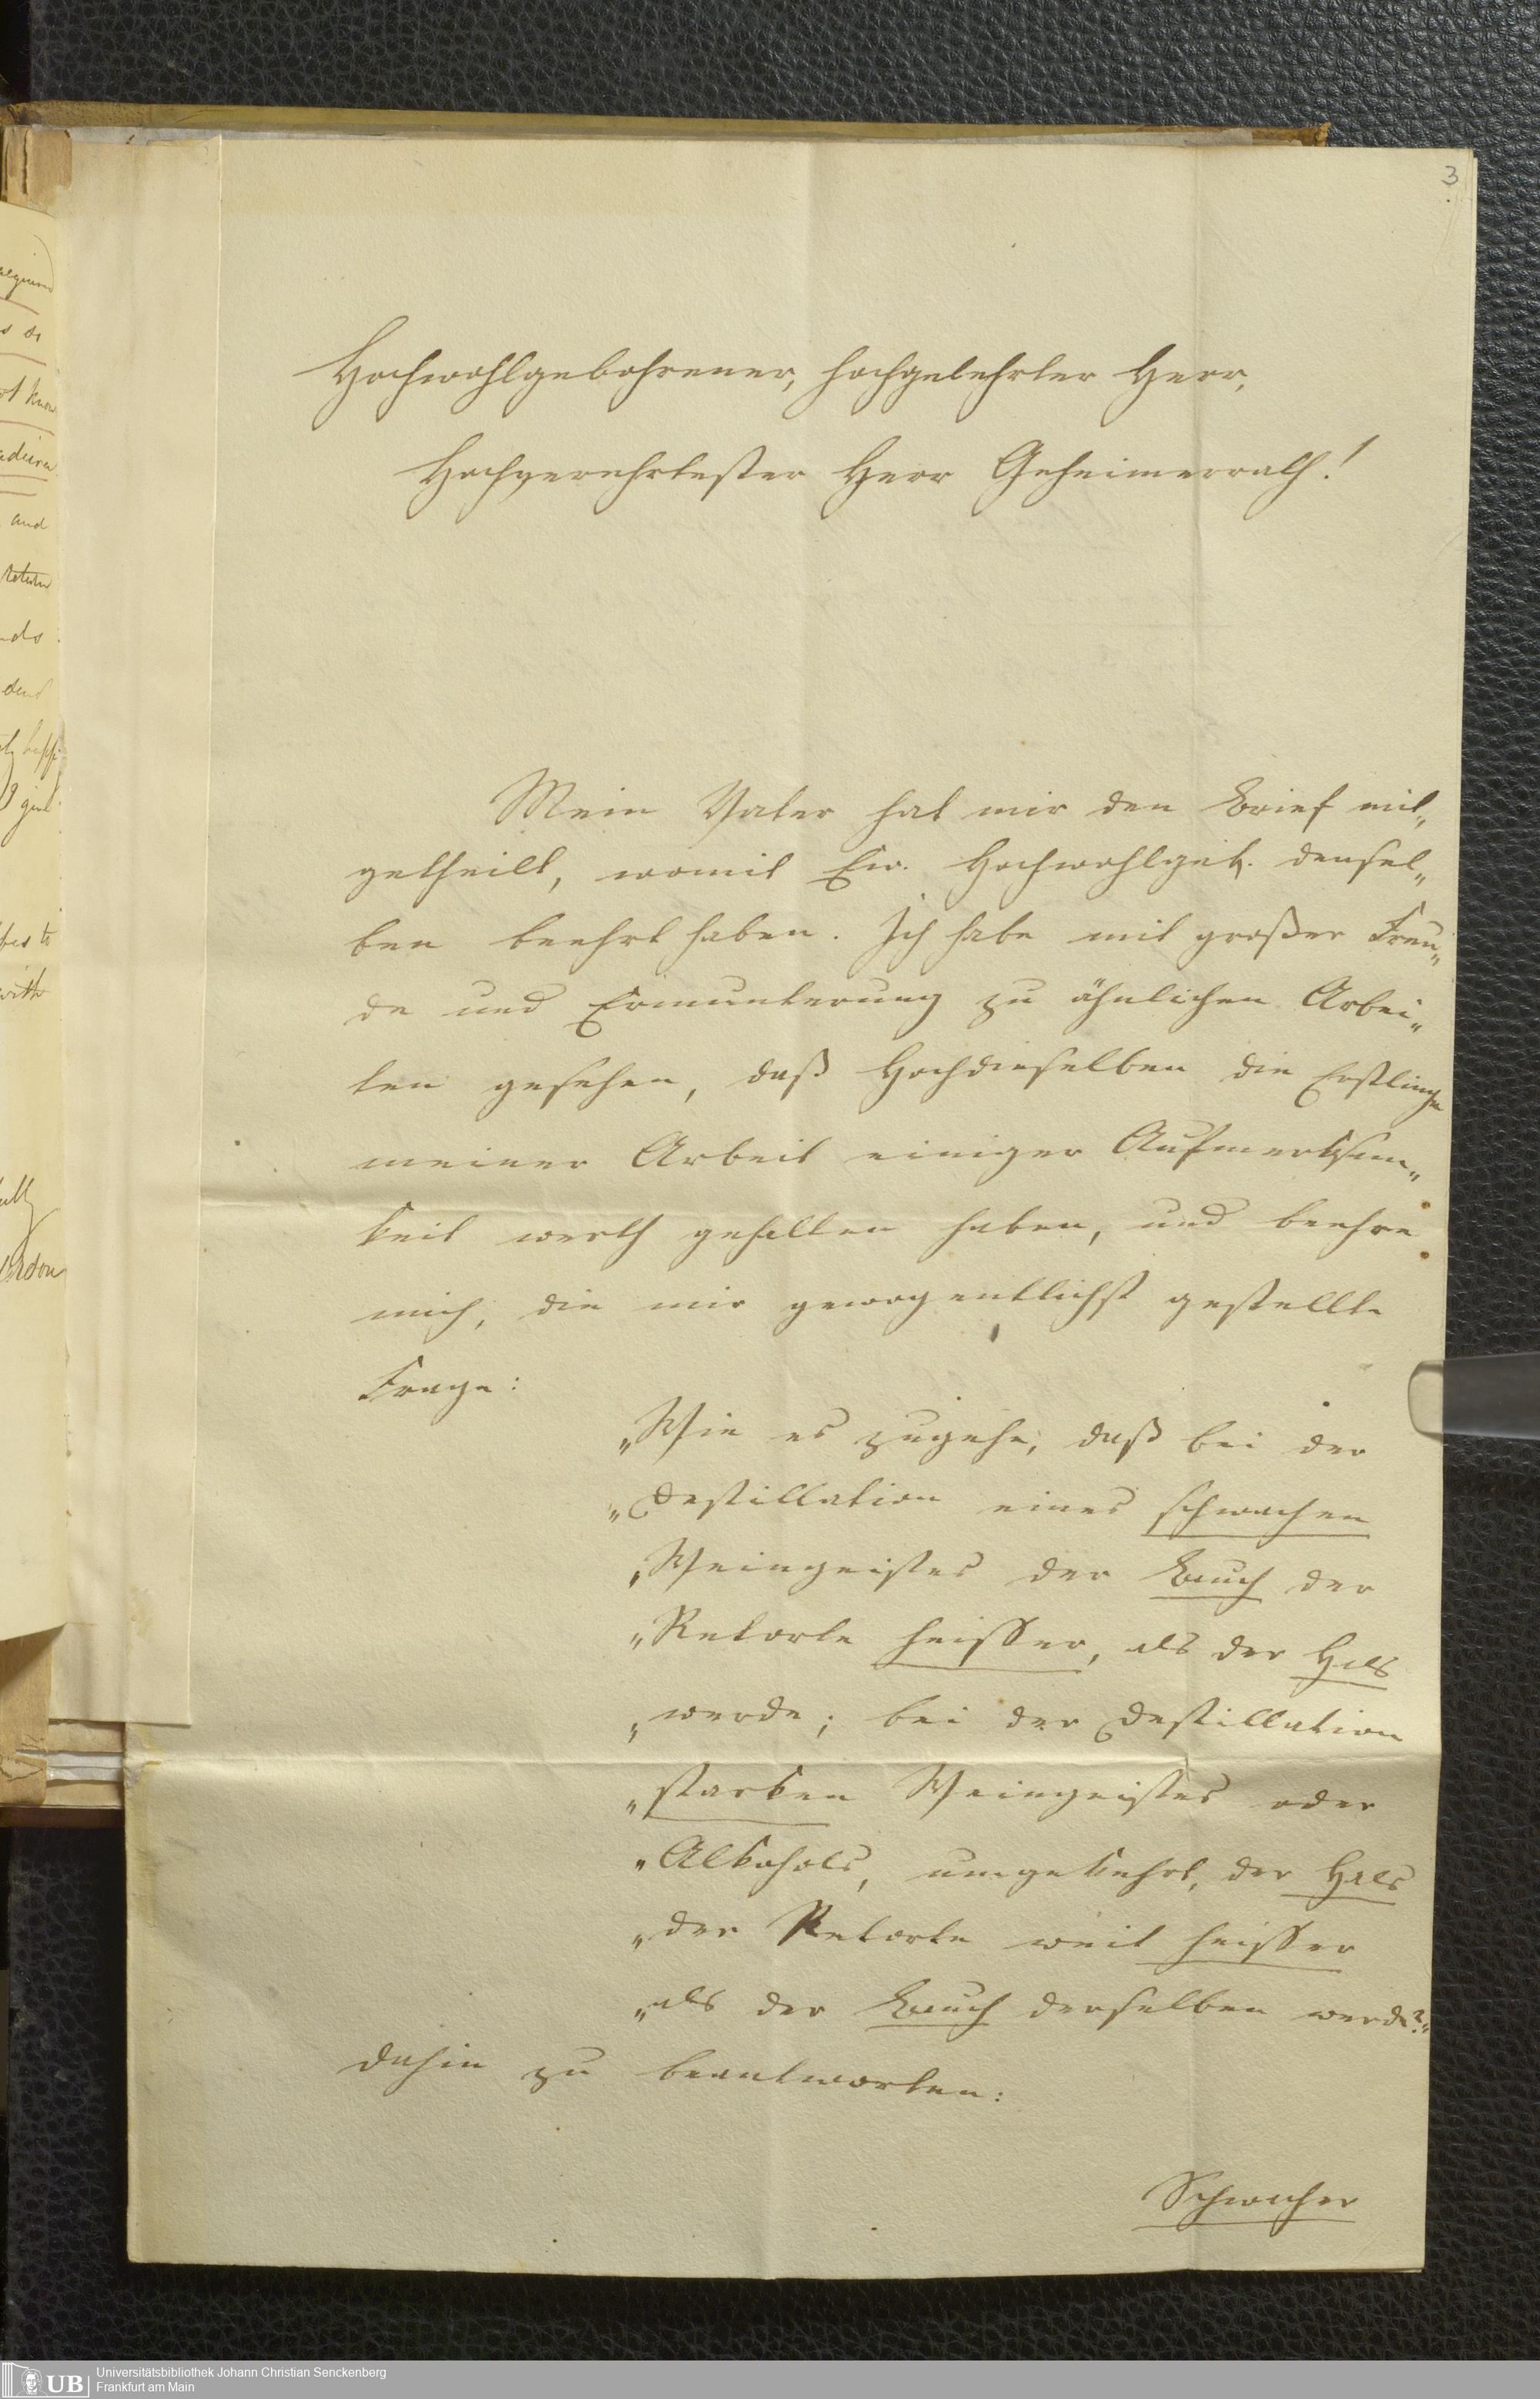 3
Hochwohlgebohrener, hochgelehrter Herr,
Hochverehrtester Herr Geheimerrath!
Mein Vater hat mir den Brief mit„
getheilt, womit Ew. Hochwohlgeb. densel„
ben beehrt haben. Ich habe mit großer Freu„
de und Ermunterung zu ähnlichen Arbei„
ten gesehen, daß Hochdieselben die Erstlinge
meiner Arbeit einiger Aufmerksam„
keit werth gehalten haben, und beehre
mich, die mir gewogentlichst gestellte
Frage:
„Wie es zugehe, daß bei der
„Destillation eines schwachen
„Weingeistes der Bauch der
„Retorte heisser, als der Hals
„werde; bei der Destillation
„starken Weingeistes oder
„Alkohols, umgekehrt, der Hals
„der Retorte weit heisser
„als der Bauch derselben werde?"
dahin zu beantworten:
Schwacher
and
with
UB
Universitätsbibliothek Johann Christian Senckenberg
Frankfurt am Main